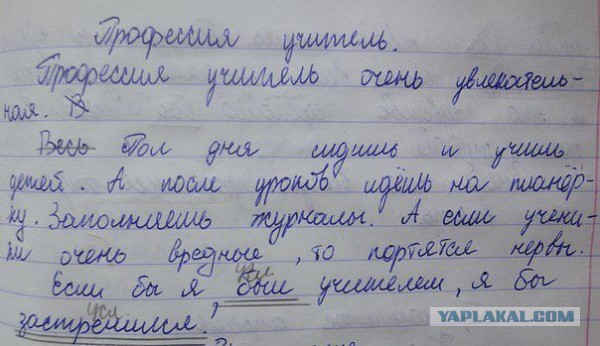 Профессия учитель.
Профессия учитель очень увлекатель-
ная. В
Весь Пол дня сидишь и учишь
детей. А после уроков идёшь на планёр-
ку. Заполняешь журналы. А если учени-
ки очень вредные, то портятся нервы.
Если бы я был учителем, я бы
застрелился.
YAPLAKAL.COM